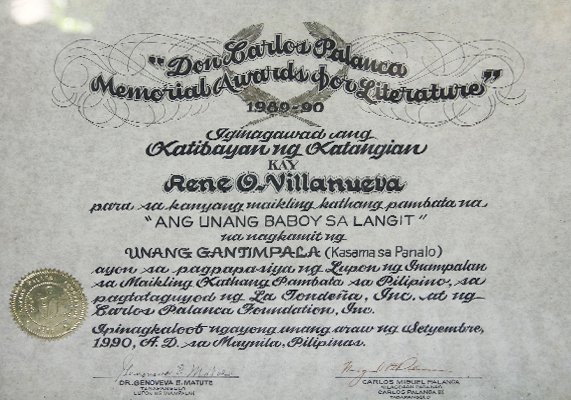 "Don Carlos Palanca
Memorial Awards for Literature"
1989-90
Iginagawad ang
Katibayan ng Katangian
KAY
Rene O. Villanueva
para sa kanyang maikling kathang pambata na
"ANG UNANG BABOY SA LANGIT"
na nagkamit ng
UNANG GANTIMPALA (Kasama sa Panalo)
ayon sa pagpapasiya ng Lupon ng Inampalan
sa Maikling Kathang Pambata sa Pilipino, sa
pagtataguyod ng La Tondeña, Inc. at ng
Carlos Palanca Foundation, Inc.
Ipinagkaloob ngayong unang araw ng Setyembre,
1990, A.D. sa Maynila, Pilipinas.
Genoveva E. Matute
DR. GENOVEVA E. MATUTE
LUPON NG INAMPALAN
CARLOS MIGUEL PALANCA
CARLOS PALANCA III